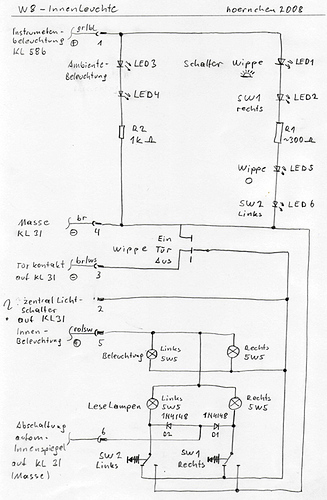 W8 - Innenleuchte
hoernchen 2008
Instrumenten-
beleuchtung
KL 58b
gr/bl
+
1
LED3
Ambiente-
Beleuchtung
LED4
R2
1KΩ
Schalter Wippe
LED1
SW1
rechts
LED2
R1
~300Ω
Wippe
O
LED5
SW2
Links
LED6
Masse
KL 31
br
-
4
Ein
Wippe Tür
Aus
Türkontakt
auf KL31
br/ws
-
3
2 zentral Licht-
Schalter
auf KL31
2
Innen-
Beleuchtung
ro/sw
+
5
Beleuchtung
Links
5W5
Rechts
5W5
LeseLampen
Links
5W5
Rechts
5W5
1N4148
D2
1N4148
D1
Abschaltung
autom.
Innenspiegel
auf KL 31
(Masse)
6
SW2
Links
SW1
Rechts